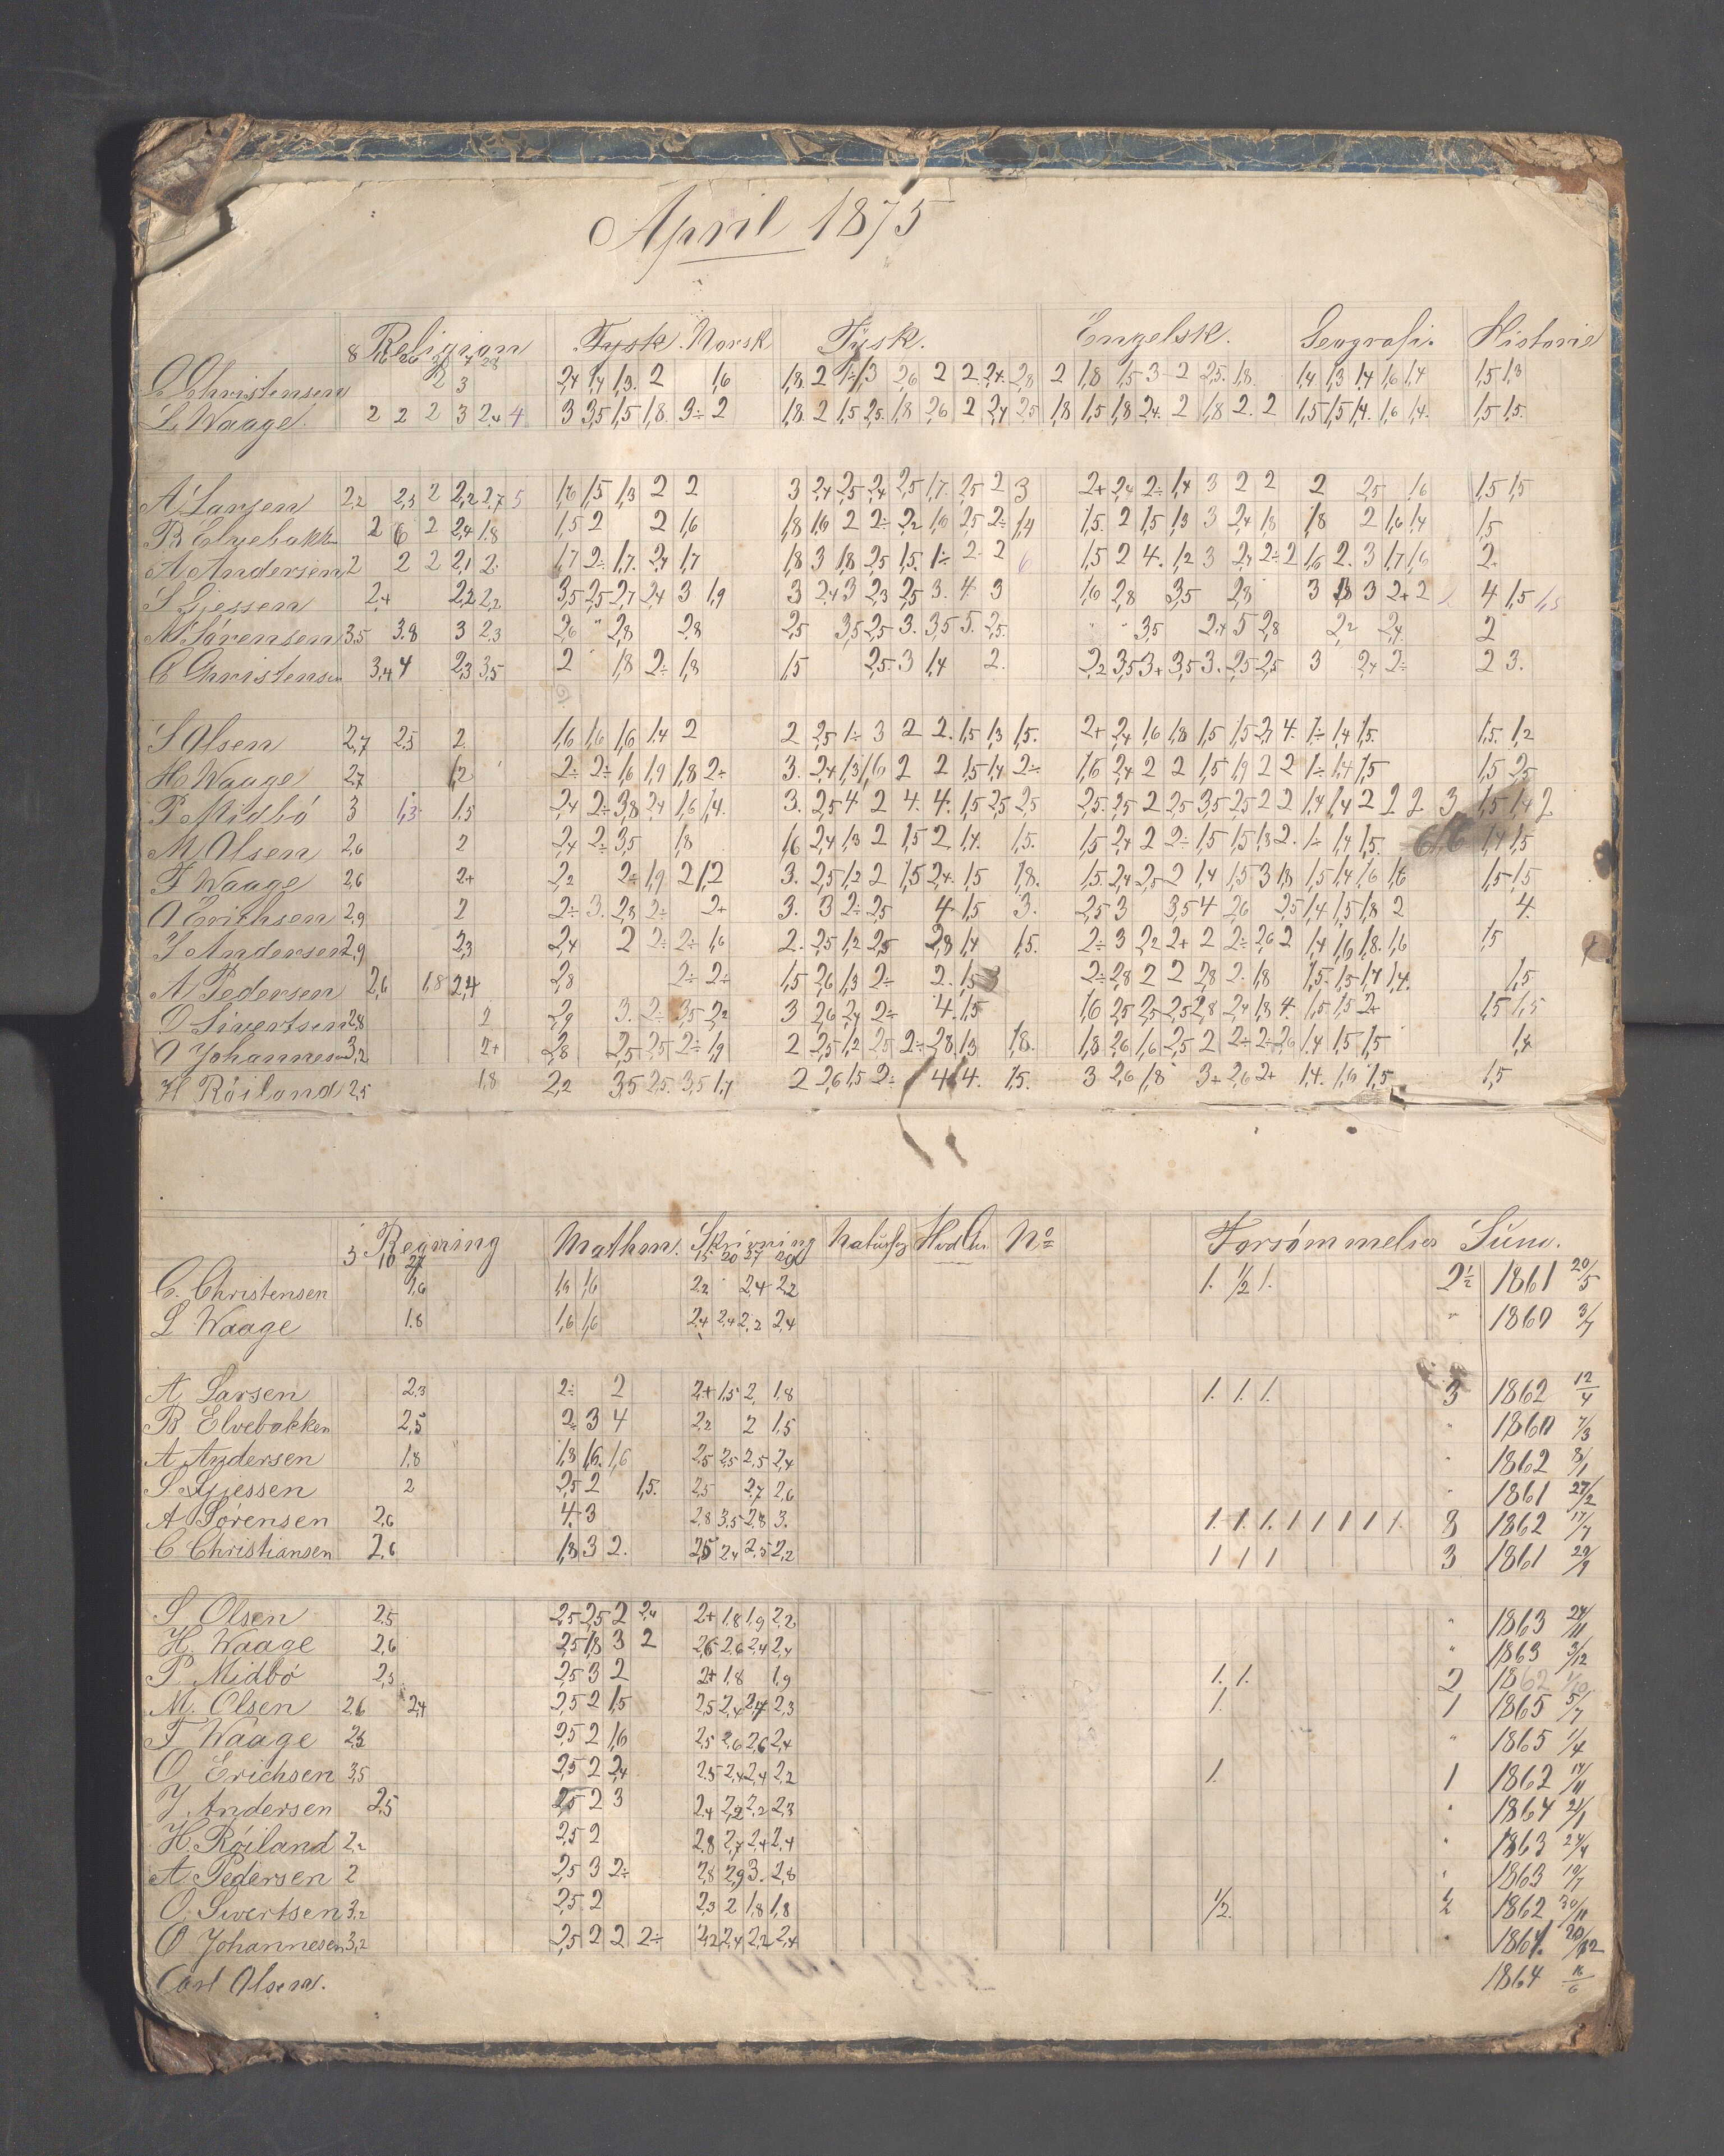 April 1875
Religion Tysk. Norsk Tysk. Engelsk. Geografi. Historie
C Christensen 2 3 2,4 1,4 1,3. 2 1,6 1,8. 2 1÷ 1,3 2,6 2 2. 2,4. 2,8 2 1,8 1,5 3 2 2,5. 1,8. 1,4 1,3 1,4 1,6 1,4 1,5 1,3
L Waage. 2 2 2 3 2,4 4 3 3,5 1,5 1,8. 3÷ 2 1,8 2 1,5 2,5. 1,8 2,6 2 2,4 2,5 1,8 1,5 1,8 2,4. 2 1,8 2. 2 1,5 1,5 1,4. 1,6 1,4. 1,5 1,5.
A Larsen 2,2 2,3 2 2,2 2,7 5 1,6 1,5 1,3 2 2 3 2,4 2,5 2,4 2,5 1,7. 2,5 2 3 2+ 2,4 2÷ 1,4 3 2 2 2 2,5 1,6 1,5 1,5
B Elvebakken 2 6 2 2,4 1,8 1,5 2 2 1,6 1,8 1,6 2 2÷ 2,2 1,6 2,5 2÷ 1,4 1,5. 2 1,5 1,3 3 2,4 1,8 1,8 2 1,6 1,4 1,5
A Andersen 2 2 2 2,1 2. 1,7 2÷ 1,7. 2,4 1,7 1,8 3 1,8 2,5 1,5. 1÷ 2. 2 6 1,5 2 4. 1,2 3 2,4 2÷ 2 1,6 2. 3 1,7 1,6 2.
S Gjessen 2,4 2,2 2,2 3,5 2,5 2,7 2,4 3 1,9 3 2,4 3 2,3 2,5 3. 4. 3 1,6 2,8 3,5 2,3 3 1,8 3 2+ 2 2 4 1,5 1,5
A Sørensen 3,5 3.8 3 2,3 2,6 " 2,8 2,8 2,5 3,5 2,5 3. 3,5 5. 2,5. " " 3,5 2,4 5 2,8 2,2 2,4. 2
C Christensen 3,4 4 2,3 3,5 2 1,8 2÷ 1,8 1,5 2,5. 3 1,4 2. 2,2 3,5 3+ 3,5 3. 2,5 2,5 3 2,4 2÷ 2 3.
S Olsen 2,7 2,5 2 1,6 1,6 1,6 1,4 2 2 2,5 1÷ 3 2 2. 1,5 1,3 1,5. 2+ 2,4 1,6 1,8 1,5 1,5 2,4 4. 1÷ 1,4 1,5. 1,5. 1,2
H. Waage 2,7 1,2 2÷ 2÷ 1,6 1,9 1,8 2÷ 3. 2,4 1,3 1,6 2 2 1,5 1,4 2÷ 1,6 2,4 2 2 1,5 1,9 2 2 1÷ 1,4 1,5 1,5 2,5
P Midbó 3 1,3 1,5 2,4 2÷ 3,8 2,4 1,6 1,4. 3. 2,5 4 2 4. 4. 1,5 2,5 2,5 2,5. 2,5 2 2,5 3,5 2,5 2 2 1,4 1,4 2 2 2 3 1,5 1,4 2
M Olsen 2,6 2 2,4 2÷ 3,5 1,8 1,6 2,4 1,3 2 1,5 2 1,4. 1,5. 1,5 2,4 2 2÷ 1,5 1,5 1,8 2. 1÷ 1,4 1,5. 1,4 1,5
F Waage 2,6 2+ 2,2 2÷ 1,9 2 1,2 3. 2,5 1,2 2 1,5 2,4. 1,5 1,8. 1,5. 2,4 2,5 2 1,4 1,5 3 1,8 1,5 1,4 1,6 1,6 1,5 1,5
O Erichsen 2,9 2 2÷ 3. 2,8 2÷ 2+ 3. 3 2÷ 2,5 4. 1,5 3. 2,5 3 3,5 4 2,6 2,5 1,4 1,5 1,8 2 4.
J Andersen 2,9 2,3 2,4 2 2÷ 2÷ 1,6 2. 2,5 1,2 2,5 2,8 1,4 1,5. 2÷ 3 2,2 2+ 2 2÷ 2,6 2 1,4 1,6 1,8. 1,6 1,5
A Pedersen 2,6 1,8 2,4 2,8 2÷ 2÷ 1,5 2,6 1,3 2÷ 2. 1,5 3 2÷ 2,8 2 2 2,8 2. 1,8 1,5. 1,5 1,4 1,4. 1,5
O Sivertsen 2,8 2 2,9 3. 2÷ 3,5 2,2 3 2,6 2,4 2÷ 4. 1,5 1,6 2,5 2,5 2,5 2,8 2,4 1,8 4. 1,5 1,5 2+ 1,5 1,5
O Johannesen 3,2 2+ 2,8 2,5 2,5 2÷ 1,9 2 2,5 1,2 2,5 2÷ 2,8 1,3 1,8. 1,8 2,6 1,6 2,5 2 2÷ 2÷ 2,6 1,4 1,5 1,5 1,4
H Röiland 2,5 1,8 2,2 3,5 2,5. 3,5 1,7 2 2,6 1,5 2÷ 4 4. 1,5. 3 2,6 1,8 3+ 2,6 2+ 1,4. 1,6 1,5 1,5
Regning Mathm. Skrivning Naturfag No Forsømmelser Sum.
C. Christensen 1,6 1,6 1,6 2,2 2,4 2,2 1. ½ 1. 2½ 1861 20/5
L Waage 1.8 1,6 1,6 2,4 2,4 2,2 2,4 " 1860 3/7
A Larsen 2,3 2÷ 2 2+ 1,5 2, 1,8 1. 1. 1. 3 1862 12/4
B Elvebakken 2,5 2÷ 3 4 2,2 2 1,5 " 1860 7/3
A Andersen 1,8 1,8 1,6. 1,6 2,5 2,5 2,5 2,4 " 1862 8/1
S. Gjessen 2 2,5 2 1,5. 2,5 2,7 2,6 " 1861 27/2
A Sørensen 2,6 4. 3 2,8 3,5 2,8 3. 1. 1. 1. 1 1 1 1 1. 8 1862 17/7
C Christiansen 2,6 1,8 3 2. 2,5 2,4 2,5 2,2 1 1 1 3 1861 29/9
S. Olsen 2,5 2,5 2,5 2 2,4 2+ 1,8 1,9 2,2 " 1863 24/11
H. Waage 2,6 2,5 1,8 3 2 2,6 2,6 2,4 2,4 " 1863 3/12
P. Midbó 2,5 2,5 3 2 2+ 1,8 1,9 1. 1. 2 1862 1/10
M. Olsen 2,6 2,4 2,5 2 1,5 2,5 2,4 2,4 2,3 1. 1 1865 5/7
F Waage 2,5 2,5 2 1,6 2,5 2,6 2,6 2,4 " 1865 1/4
O Erichsen 3,5 2,5 2 2,4 2,5 2,4 2,4 2,2 1. 1 1862 14/11
J Andersen 2,5 2,5 2 3 2,4 2,2 2,2 2,3 " 1864 21/1
H. Röiland 2,2 2,5 2 2,8 2,7 2,4 2,4 " 1863 24/4
A Pedersen 2 2,5 3 2÷ 2,8 2,9 3. 2,8 " 1863 19/7
O. Sivertsen 3,2 2,5 2 2,3 2 1,8 1,8 ½. ½ 1862 30/11
O Johannesen 3,2 2,5 2 2 2÷ 2,2 2,4 2,2 2,4 " 1861. 20/12
Carl Olsen. 1864 16/6